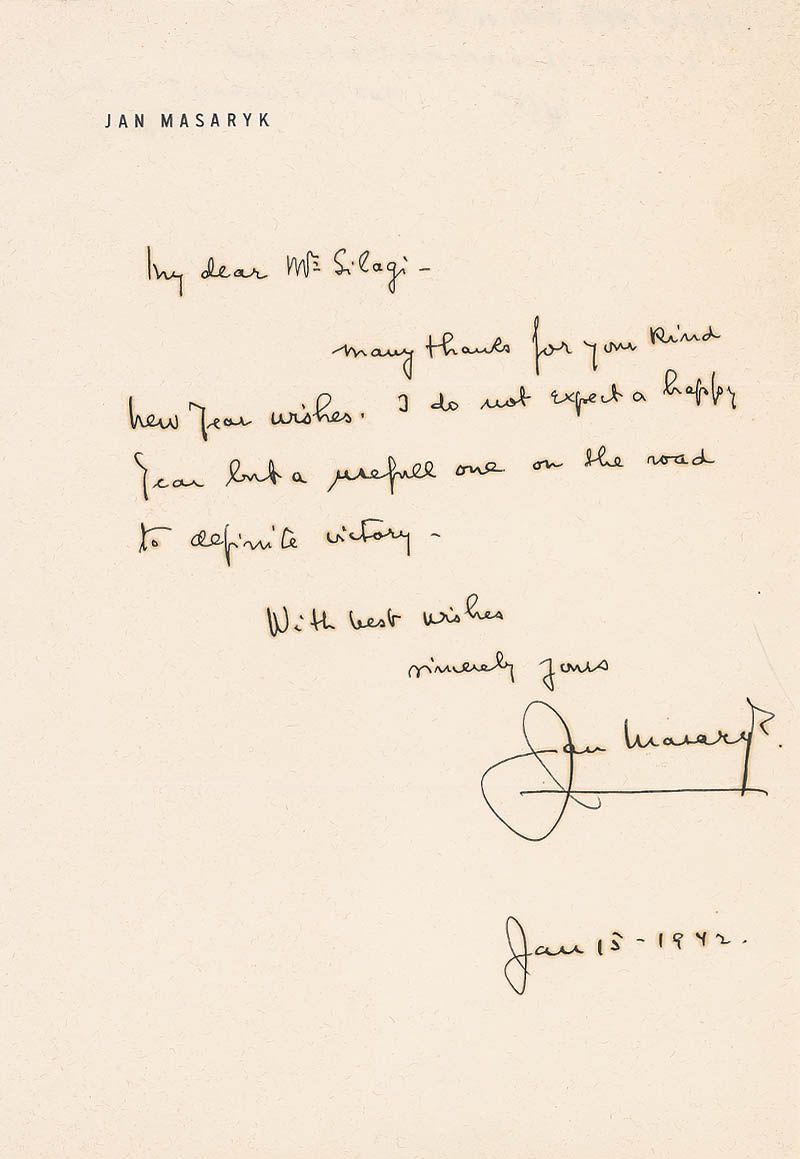 JAN MASARYK
My dear Mr Silagi –
many thanks for your kind
New Year wishes. I do not expect a happy
Year but a usefull one on the road
to definite victory –
With best wishes
sincerely yours
Jan Masaryk.
Jan 15 – 1942.